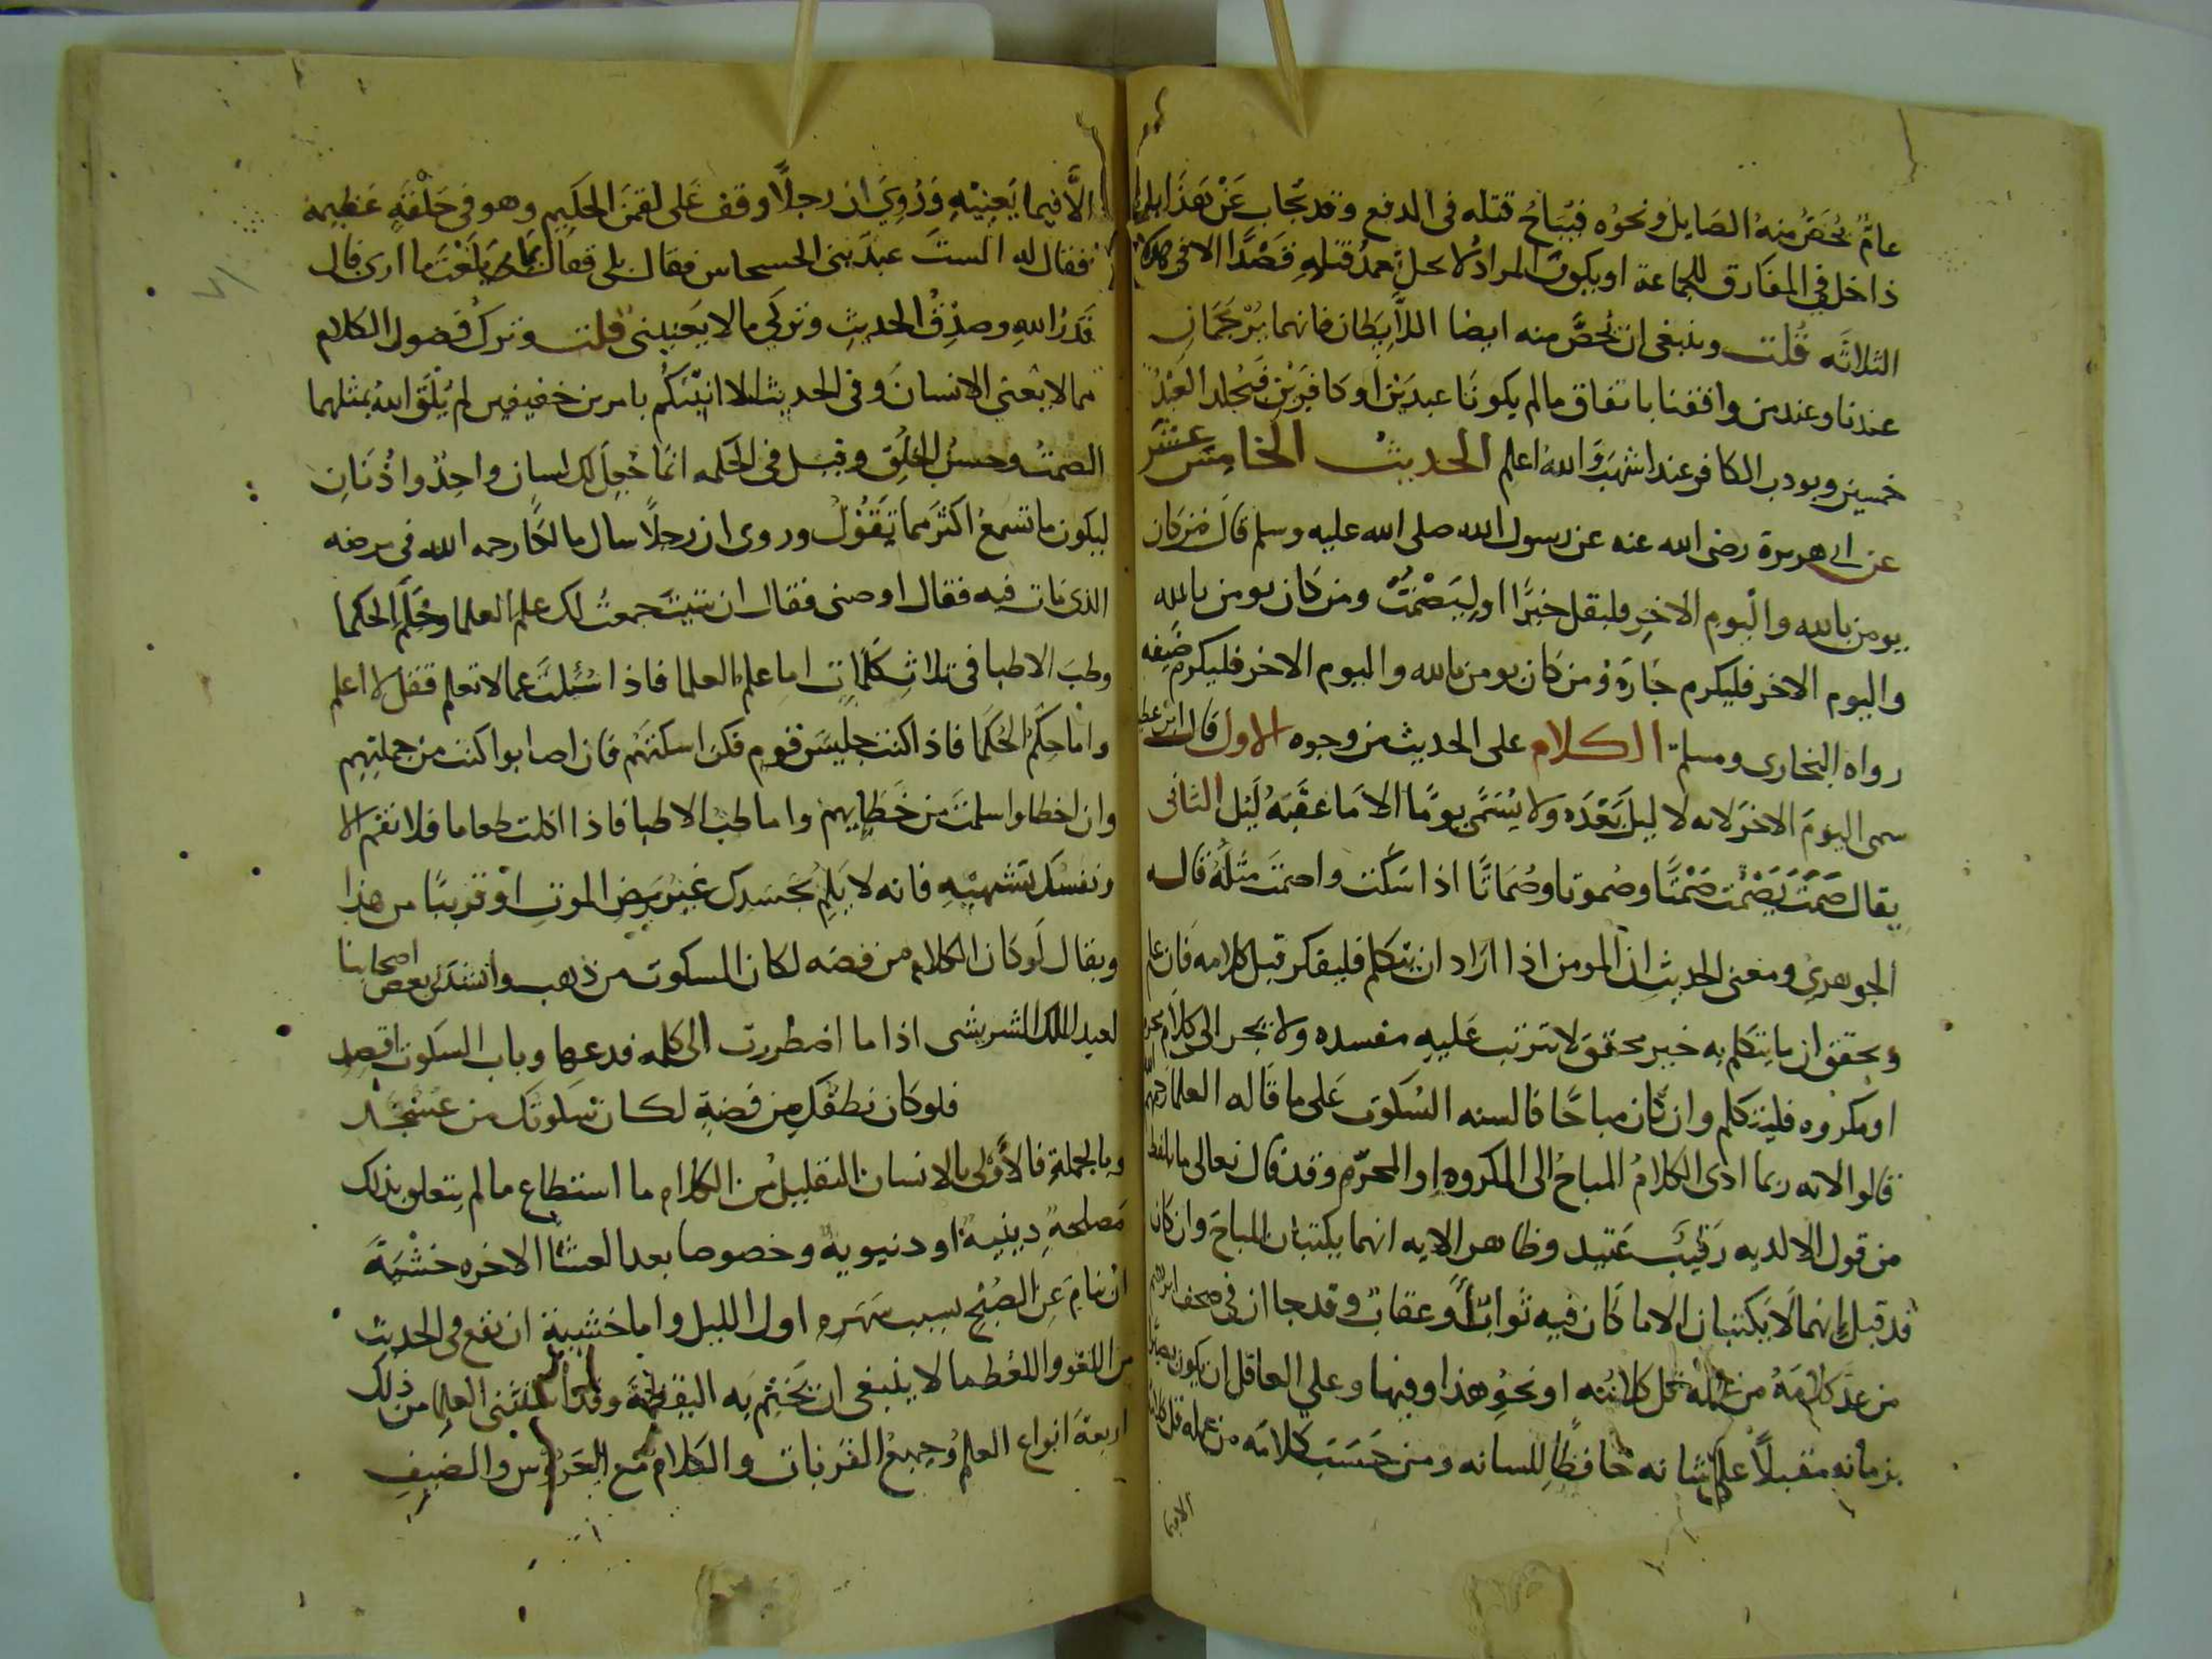 عامٌّ يُخَصُّ منهُ الصَايل ونحوُه فيُبَاحُ قتله فى الدفع وقد يُجاب عَنْ هَذَا بانه
داخل في المفَارق للجماعة او يكونَ المرادُ لا يحل تعمدُ قتلِهِ قَصْدًا الا فى هولاء
الثلاثَه قُلت وينبغى ان يُخَصَّ منه ايضا اللاَّيِطَان فانهما يُرْجَمَانِ
عندنا وعند من وافقنا باتفاق مالم يكونَا عبدَيْن اوكافِرَيْنِ فيُجلد العَبْدُ
خمسين ويودب الكافر عند اشهَبَ والله اعلم الحديث الخامِس عشَر
عن ابى هريرة رضى الله عنه عن رسول الله صلى الله عليه وسلم قال من كان
يومن بالله واليوم الاخِر فليقل خيرًا او لِيَصْمُتْ ومن كان يومن بالله
واليوم الاخر فليكرم جَارَه ومن كان يومن بالله واليوم الاخر فليكرم ضيفه
رواه البخارى ومسلم الكلام على الحديث من وجوه الاول قال ابن عطيه
سمى اليومَ الاخرَ لانه لا ليلَ بَعْدَه ولا يُسَمَّى يومًا الا مَا عَقَبَهُ لَيل الثانى
يقال صَمَتَ يَصْمُت صَمْتًا وصُموتا وصُمَاتًا اذا سَكَت واصمَتَ مثلَهُ قاله
الجوهرى ومعنى الحديث ان المومن اذا ارَاد ان يتكلم فليفكر قبل كلامه فَان علم
وتحقق ان ما يتكلم به خير محقق لا تترتب عَليهِ مفسده ولا يجر الى كلام محرم
او مكروه فليتكلم وان كان مباحًا فالسنه السُكوت عَلى ما قَاله العلما رحمهم الله
قالوا لانه ربما ادى الكلامُ المباحُ الى المكروه او المحرّم وقد قال تعالى ما يلفظ
من قول الا لديه رَقيبٌ عَتيد وظاهر الايه انهما يكتبان المباحَ وان كان
قد قيل انهما لَا يَكتبان الا ما كَان فيه ثوابٌ أو عقابٌ وقد جا ان فى صحف ابراهيم
من عدَّ كلامَهُ من عمله قل كلامُه او نحوُ هذا وفيها وعلى العاقل ان يكون بصيرا
بزمانه مقبلاً على شانه حَافظًا للسانه ومن حَسَبَ كلامَه من عمله قل كلامه
الا فيما
الاَّ فيما يَعنِيْهِ وَرُوِيَ ان رجلاً وقف عَلى لقمنَ الحَكيم وهو فى حَلْقةٍ عَظِيمه
فقال له الستَ عبدَ بنى الحسحاس فقال بلى فقال بما بَلَغْتَ ما ارى قال
قَدَرُ الله وصِدْقُ الحديث وتركى ما لا يَعنينى قلت وتركُ فضول الكلام
مما لا يعنى الانسانَ وفى الحديث الا انبّئكُم بامرين خفيفين لم يُلْقَ اللهُ بمثلهما
الصُمتُ وحُسنُ الخُلُق وقيل فى الحَكمه انمَا جُعِلَ لك لسان واحِدٌ واذُنَانِ
ليكون ما تسمعُ اكثرَ مما تَقُوْلُ وروى ان رجلاً سال مالكًا رحمه الله فى مرضه
الذى مَات فيه فقال اوصنى فقال ان شيت جمعتُ لك علم العلما وحُكْمَ الحكما
وطبَ الاطبا فى ثلاثِ كَلمَاتٍ اما علم العلما فاذا سُئلتَ عما لا تعلم فقل لا اعلم
واما حِكَمُ الحُكَما فاذا كنت جليْسَ قوم فكن اسكتهُم فان اصابوا كنت من جملتِهِم
وان اخطاوا سلمتَ من خَطايهم واما طب الاطبا فاذا اكلت طعاما فلا تقم الا
ونفسُكَ تشتهيْهِ فانه لا يُلِم بجَسَدِك غيرُ مَرَضِ الموتِ او قريبًا من هذا
ويقال لَو كَان الكلام من فضه لكان السكوت من ذهب وانشدَنى بعض اصحابنا
لعبد الملك الشريشى اذا ما اضطررت الى كلمه فدعها وباب السكوت اقصد
فلو كان نطقُكَ مِن فضةٍ لكان سكوتُك من عَسْجَد
وبالجملةِ فالأَوْلى بالانسان التقليلُ من الكلام ما استطاع ما لم يتعلق بذلك
مَصلحةٌ دينيةٌ او دنيويه وخصوصا بعد العشَا الاخره خشْيَةَ
ان ينامَ عَن الصُبْحِ بسبب سَهَرِهِ اول الليل واما خشيةَ ان يقع فى الحديث
من اللغو واللغط ما لا ينبغى ان يَختم به اليقظةَ وقد استَثنى العلما من ذلك
اربعةَ انواع العلمُ وجميعُ القرُبات والكلامُ مَع العَرُوْس والضيفِ